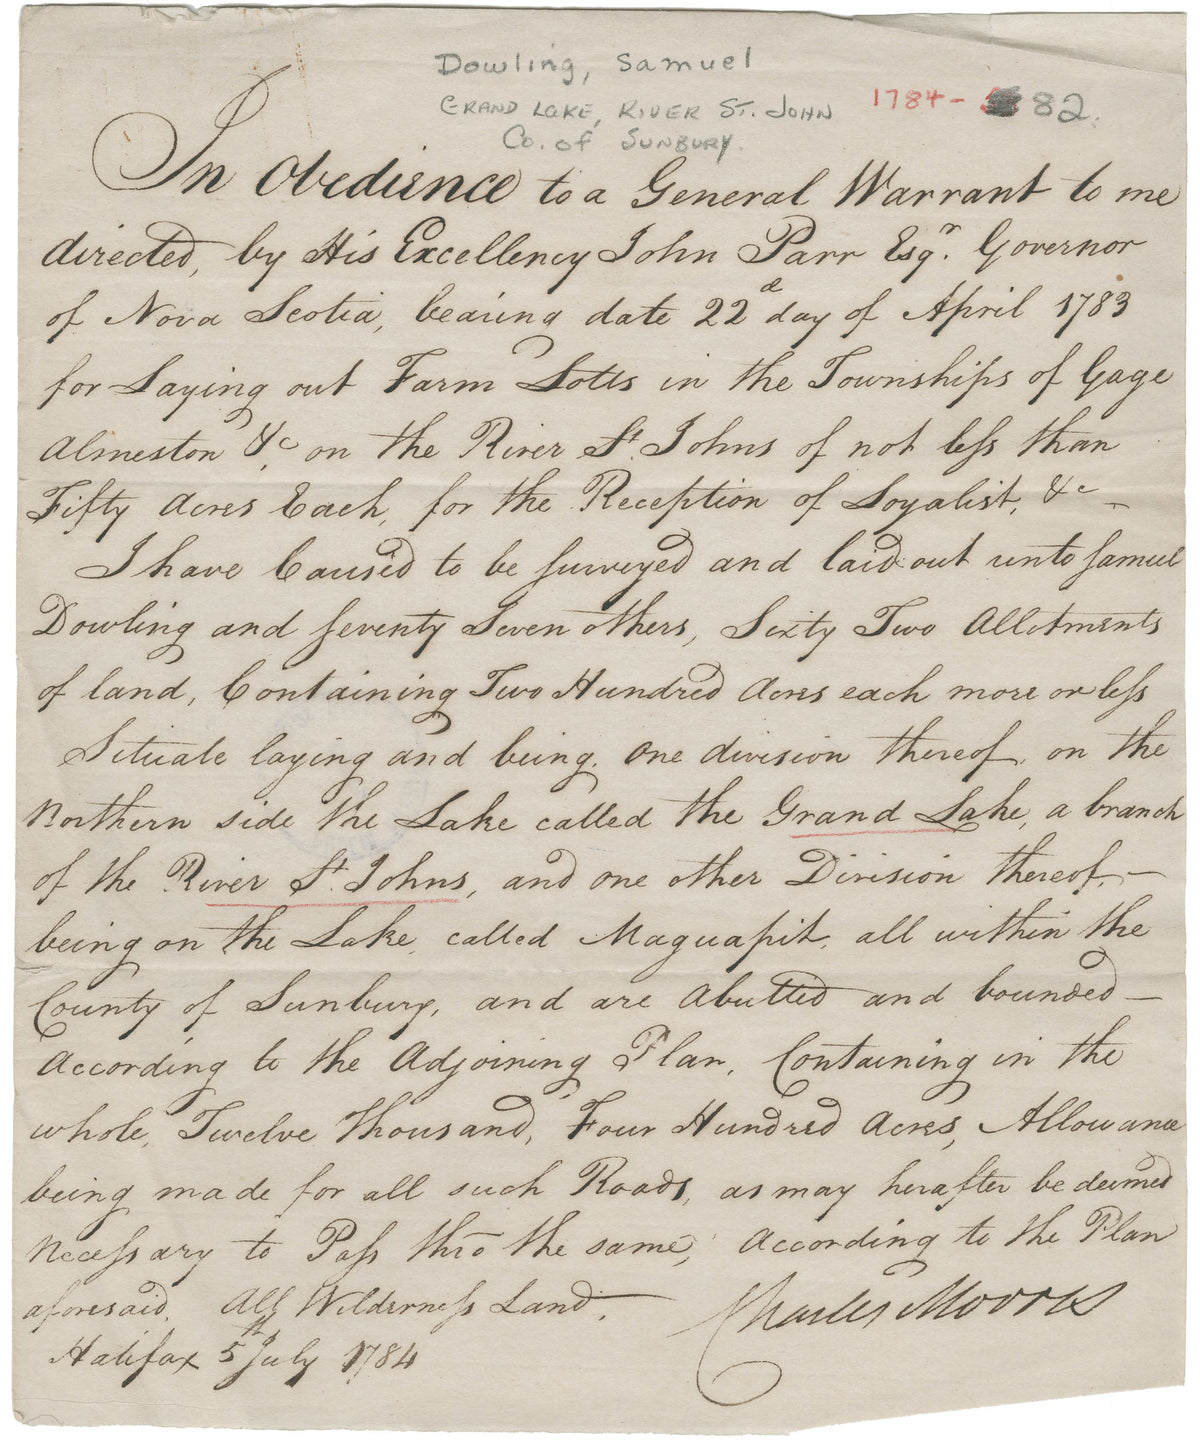 Dowling, Samuel
GRAND LAKE, RIVER ST. JOHN
1784- 82.
Co. of SUNBURY.
In Obedience to a General Warrant to me
directed, by His Excellency John Parr Esqr. Governor
of Nova Scotia, bearing date 22d day of April 1783
for Laying out Farm Lotts in the Townships of Gage
Almeston &c. on the River St. Johns of not less than
Fifty Acres Each, for the Reception of Loyalist, &c -
I have Caused to be surveyed and laid out unto Samuel
Dowling and seventy Seven others, Sixty Two Allotments
of land, Containing Two Hundred Acres each more or less
Situate laying and being. One division thereof, on the
Northern side the Lake called the Grand Lake, a branch
of the River St. Johns, and one other Division thereof, -
being on the Lake, called Maguapit, all within the
County of Sunbury, and are Abutted and bounded -
According to the Adjoining Plan, Containing in the
whole, Twelve Thousand, Four Hundred Acres, Allowance
being made for all such Roads, as may herafter be deemed
Necessary to Pass thro the same, According to the Plan
aforesaid. All Wilderness Land.
Charles Morris
Halifax 5th July 1784